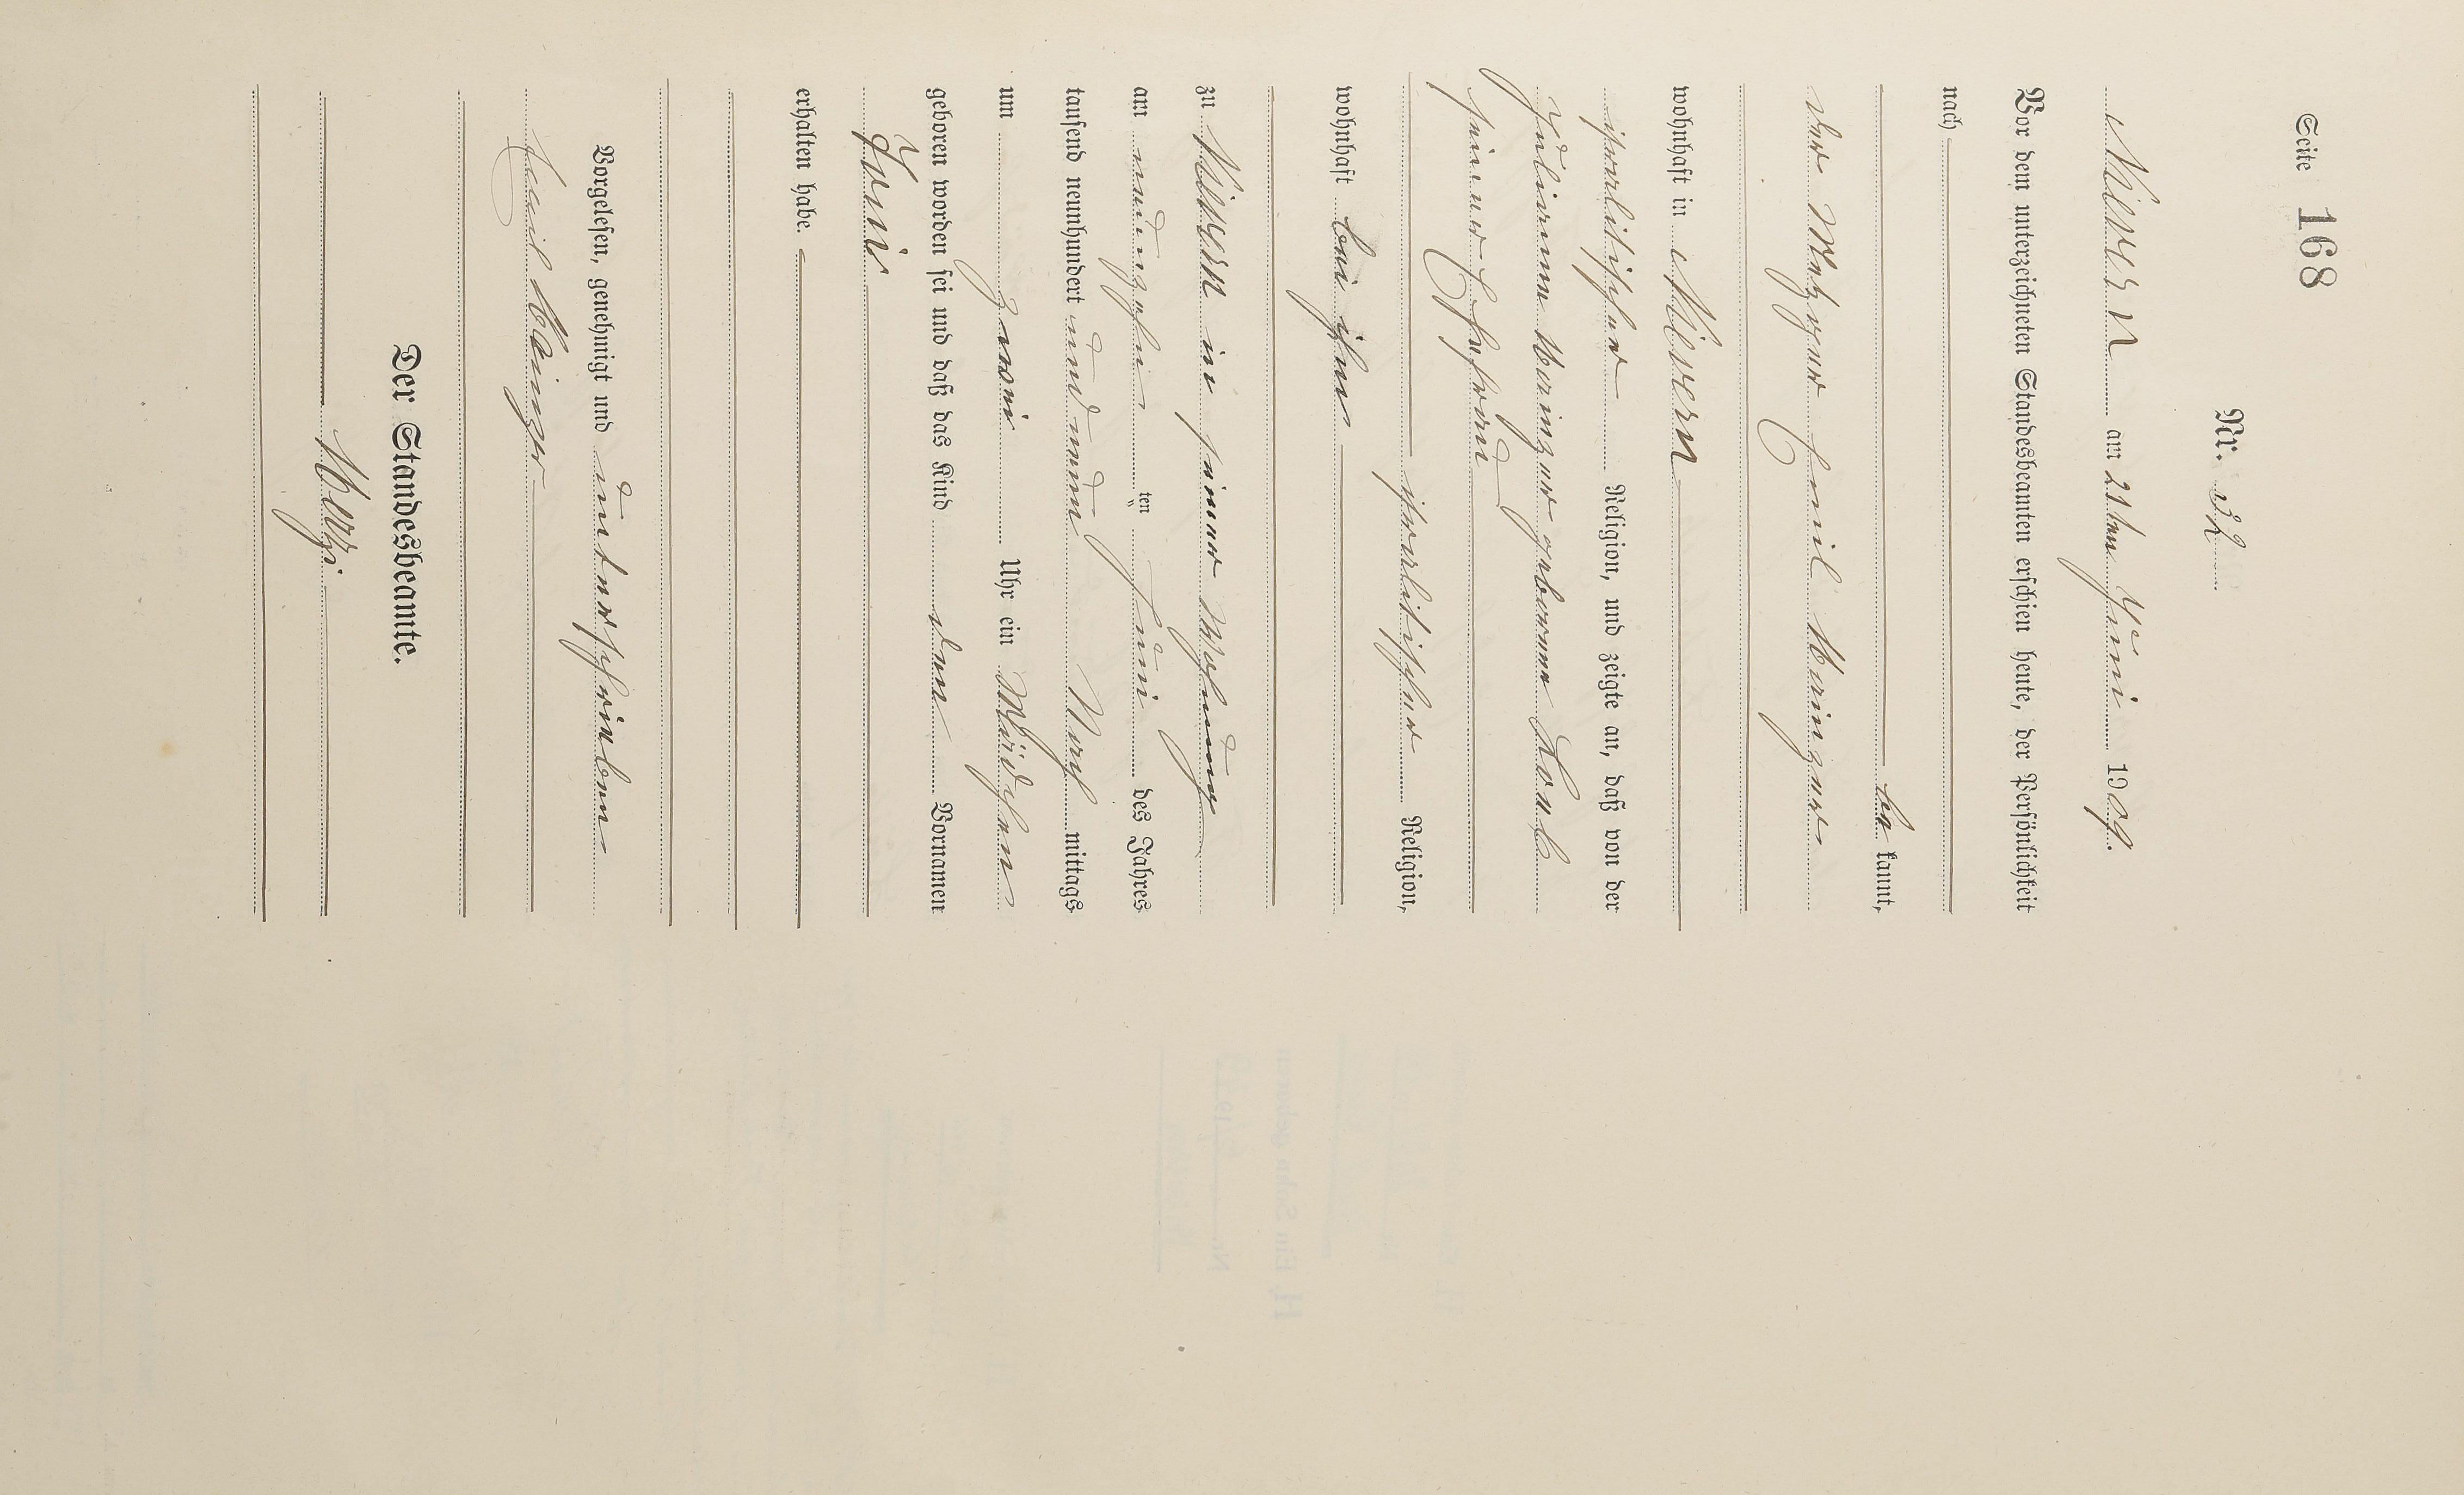 Seite 168
Nr. 32
Mivern am 21ten Juni 1909.
Vor dem unterzeichneten Standesbeamten erschien heute, der Persönlichkeit
nach
be kannt,
der Metzger Emil Mainzer
wohnhaft in Mivern
israelitischer Religion, und zeigte an, daß von der
Juliane Mainzer geborene
seiner Ehefrau
israelitischer Religion,
wohnhaft bei ihm
zu Mivern in seiner Wohnung
am neunzehn ten Juni des Jahres
tausend neunhundert und neun Nach mittags
um zwei Uhr ein Mädchen
geboren worden sei und daß das Kind den Vornamen
Joni
erhalten habe.
Vorgelesen, genehmigt und unterschrieben
Emil Mainzer
Der Standesbeamte.